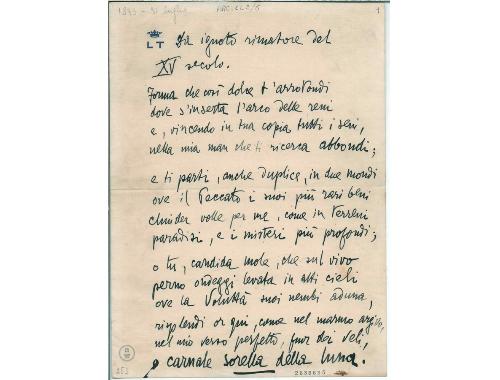 1893 - 31 luglio
1
LT
Da ignoto rimatore del
XV secolo.
Forma che così dolce t'arrotondi
dove s'inserta l'arco delle reni
e, vincendo in tua copia tutti i seni,
nella mia man che ti ricerca abbondi;
e ti parti, anche duplice, in due mondi
ove il Peccato i suoi più rari beni
chiuder volle per me, come in terreni
paradisi, e i misteri più profondi;
o tu, candida mole, che sul vivo
perno ondeggi levata in alti cieli
ove la Voluttà suoi nembi aduna,
risplendi or qui, come nel marmo argivo,
nel mio verso perfetto, fuor dei veli,
o carnale sorella della luna.
253
2533635